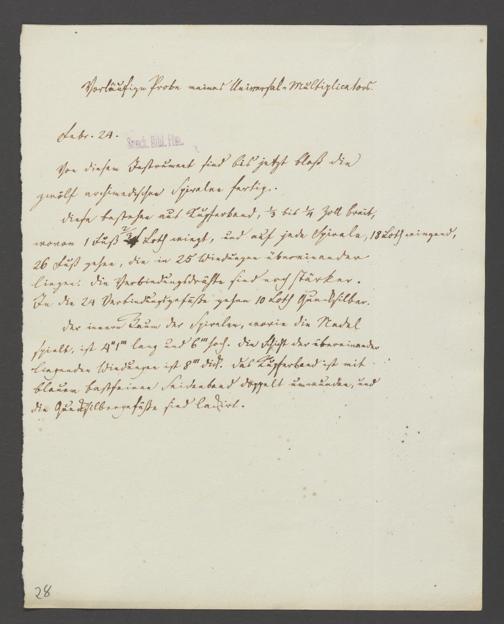 Vorläufige Probe meines Universal-Multiplicators.
Febr. 24.
Von diesem Instrument sind bis jetzt bloß die
zwölf archimedischen Spiralen fertig.
Diese bestehen aus Kupferband, 1/3 bis 1/4 Zoll breit,
wovon 1 Fuß 2/3 Loth wiegt, und auf jede Spirale, 18 Loth wiegend,
26 Fuß gehen, die in 25 Windungen übereinander
liegen. Die Verbindungsdrähte sind noch stärker.
In die 24 Verbindungsgefäße gehen 10 Loth Quecksilber.
Der innere Raum der Spiralen, worin die Nadel
spielt, ist 4"1"' lang und 6"' hoch. Die Schicht der übereinander
liegenden Windungen ist 8"' dick. Das Kupferband ist mit
blauem Seidenband doppelt umwunden, und
die Quecksilbergefäße sind lackirt.
28